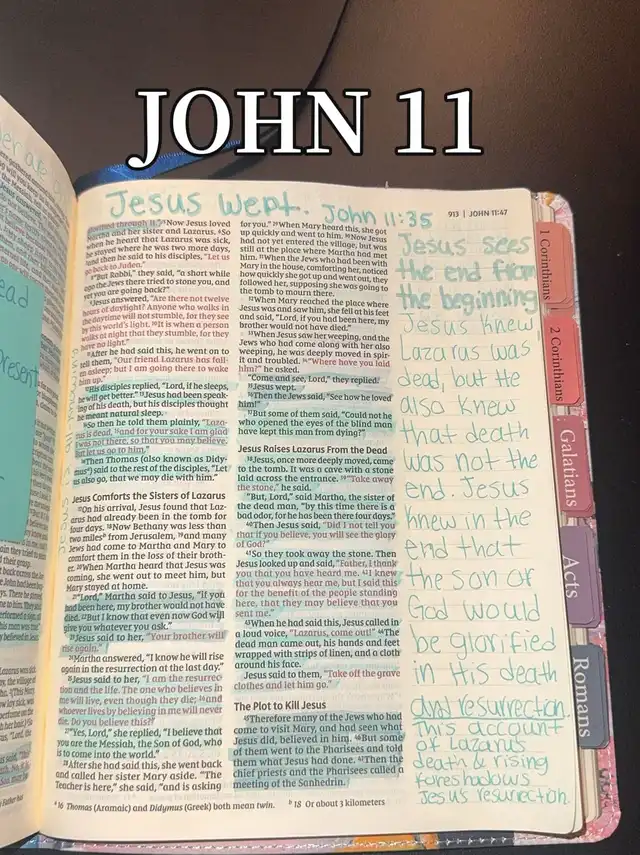 JOHN 11
Jesus wept. John 11:35
913 | JOHN 11:47
glorified through it." ⁵Now Jesus loved
Martha and her sister and Lazarus. ⁶So
when he heard that Lazarus was sick,
he stayed where he was two more days,
⁷and then he said to his disciples, "Let us
go back to Judea."
⁸"But Rabbi," they said, "a short while
ago the Jews there tried to stone you, and
yet you are going back?"
⁹Jesus answered, "Are there not twelve
hours of daylight? Anyone who walks in
the daytime will not stumble, for they see
by this world's light. ¹⁰It is when a person
walks at night that they stumble, for they
have no light."
¹¹After he had said this, he went on to
tell them, "Our friend Lazarus has fall-
en asleep; but I am going there to wake
him up."
¹²His disciples replied, "Lord, if he sleeps,
he will get better." ¹³Jesus had been speak-
ing of his death, but his disciples thought
he meant natural sleep.
¹⁴So then he told them plainly, "Laza-
rus is dead, ¹⁵and for your sake I am glad
I was not there, so that you may believe.
But let us go to him."
¹⁶Then Thomas (also known as Didy-
mus) said to the rest of the disciples, "Let
us also go, that we may die with him."
Jesus Comforts the Sisters of Lazarus
¹⁷On his arrival, Jesus found that Laz-
arus had already been in the tomb for
four days. ¹⁸Now Bethany was less than
two miles from Jerusalem, ¹⁹and many
Jews had come to Martha and Mary to
comfort them in the loss of their broth-
er. ²⁰When Martha heard that Jesus was
coming, she went out to meet him, but
Mary stayed at home.
²¹"Lord," Martha said to Jesus, "if you
had been here, my brother would not have
died. ²²But I know that even now God will
give you whatever you ask."
²³Jesus said to her, "Your brother will
rise again."
²⁴Martha answered, "I know he will rise
again in the resurrection at the last day."
²⁵Jesus said to her, "I am the resurrec-
tion and the life. The one who believes in
me will live, even though they die; ²⁶and
whoever lives by believing in me will never
die. Do you believe this?"
²⁷"Yes, Lord," she replied, "I believe that
you are the Messiah, the Son of God, who
is to come into the world."
²⁸After she had said this, she went back
and called her sister Mary aside. "The
Teacher is here," she said, "and is asking
for you." ²⁹When Mary heard this, she got
up quickly and went to him. ³⁰Now Jesus
had not yet entered the village, but was
still at the place where Martha had met
him. ³¹When the Jews who had been with
Mary in the house, comforting her, noticed
how quickly she got up and went out, they
followed her, supposing she was going to
the tomb to mourn there.
³²When Mary reached the place where
Jesus was and saw him, she fell at his feet
and said, "Lord, if you had been here, my
brother would not have died."
³³When Jesus saw her weeping, and the
Jews who had come along with her also
weeping, he was deeply moved in spir-
it and troubled. ³⁴"Where have you laid
him?" he asked.
"Come and see, Lord," they replied.
³⁵Jesus wept.
³⁶Then the Jews said, "See how he loved
him!"
³⁷But some of them said, "Could not he
who opened the eyes of the blind man
have kept this man from dying?"
Jesus Raises Lazarus From the Dead
³⁸Jesus, once more deeply moved, came
to the tomb. It was a cave with a stone
laid across the entrance. ³⁹"Take away
the stone," he said.
"But, Lord," said Martha, the sister of
the dead man, "by this time there is a
bad odor, for he has been there four days."
⁴⁰Then Jesus said, "Did I not tell you
that if you believe, you will see the glory
of God?"
⁴¹So they took away the stone. Then
Jesus looked up and said, "Father, I thank
you that you have heard me. ⁴²I knew
that you always hear me, but I said this
for the benefit of the people standing
here, that they may believe that you
sent me."
⁴³When he had said this, Jesus called in
a loud voice, "Lazarus, come out!" ⁴⁴The
dead man came out, his hands and feet
wrapped with strips of linen, and a cloth
around his face.
Jesus said to them, "Take off the grave
clothes and let him go."
The Plot to Kill Jesus
⁴⁵Therefore many of the Jews who had
come to visit Mary, and had seen what
Jesus did, believed in him. ⁴⁶But some
of them went to the Pharisees and told
them what Jesus had done. ⁴⁷Then the
chief priests and the Pharisees called a
meeting of the Sanhedrin.
Jesus sees
the end from
the beginning
Jesus knew
Lazarus was
dead, but He
also knew
that death
was not the
end. Jesus
knew in the
end that
the son of
God would
be glorified
in His death
and resurrection.
This account
of Lazarus'
death & rising
foreshadows
Jesus resurrection.
ᵃ 16 Thomas (Aramaic) and Didymus (Greek) both mean twin.
ᵇ 18 Or about 3 kilometers
1 Corinthians
2 Corinthians
Galatians
Acts
Romans